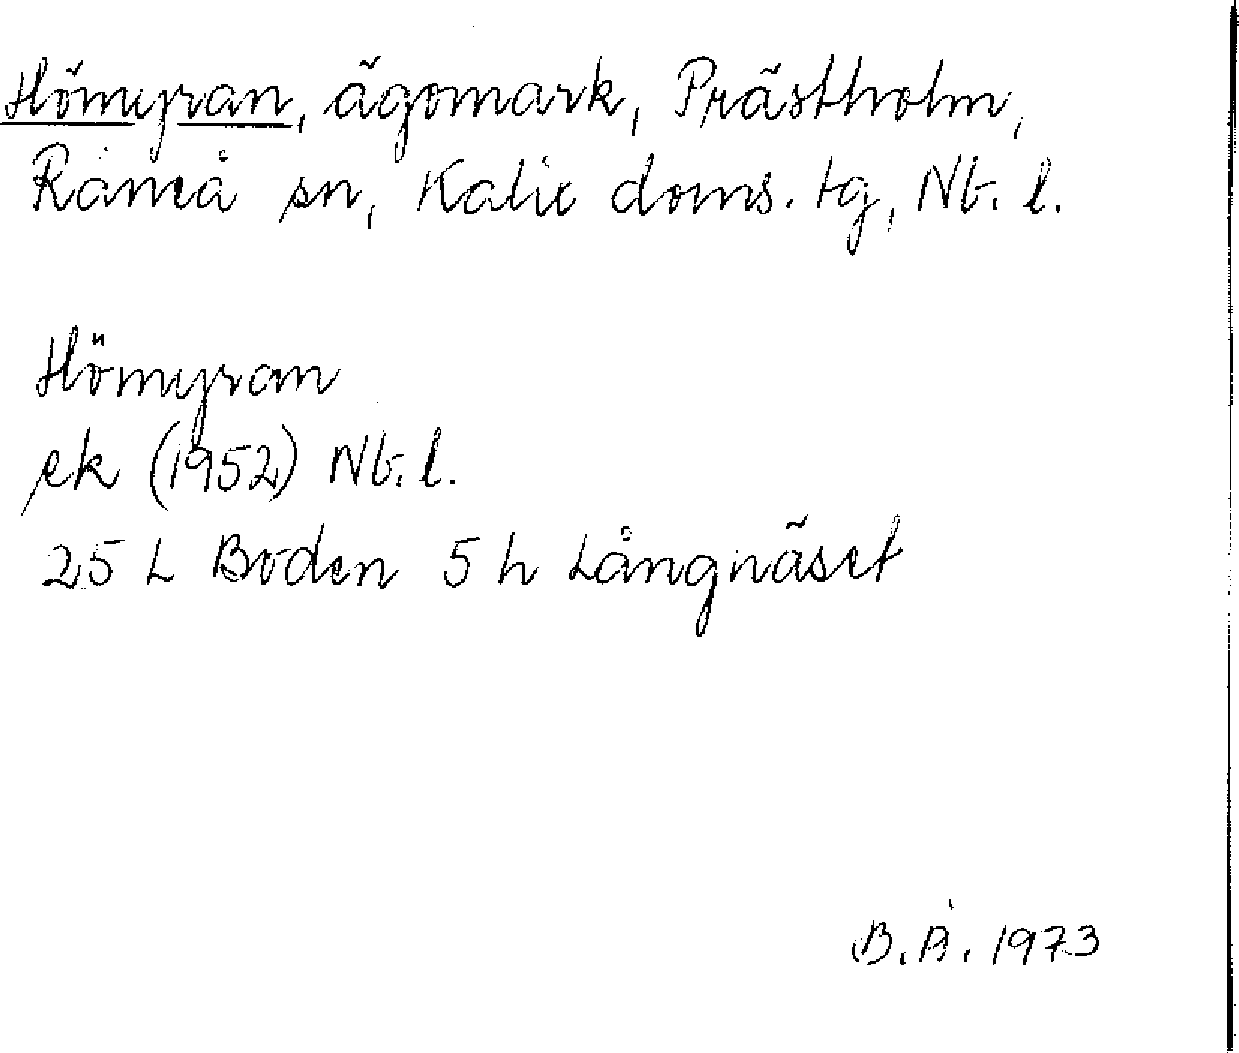 Hömyran, ägomark, Prästholm,
Råneå sn, Kalix doms. tg, Nb. l.
Hömyran
ek (1952) Nb. l.
25 L Boden 5 h Långnäset
B. Å. 1973